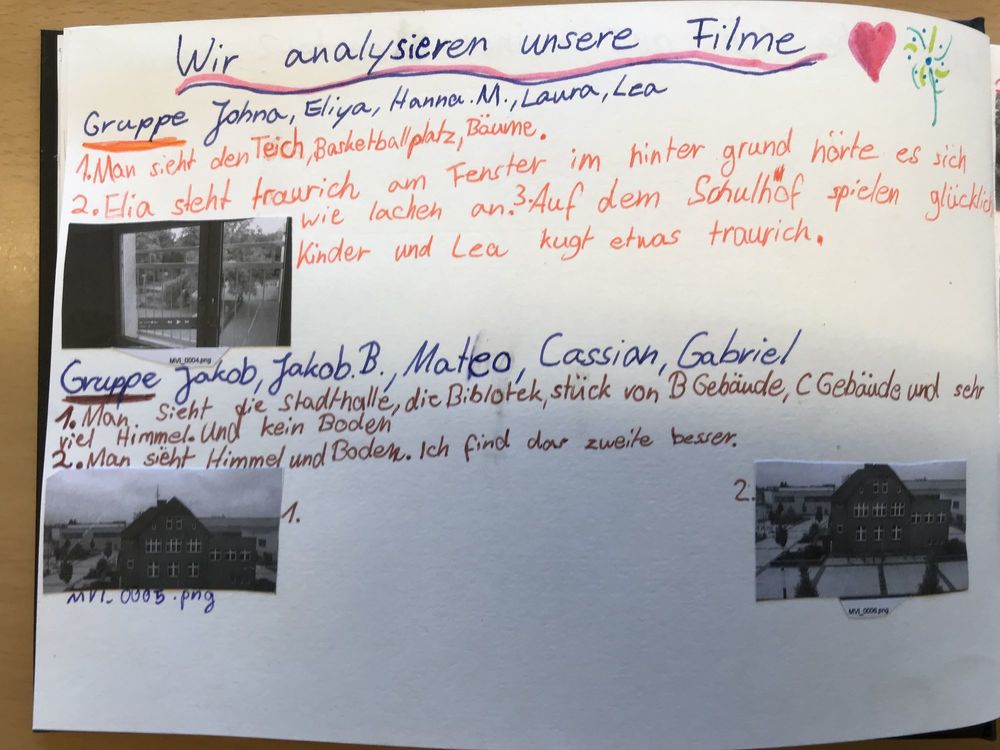 Wir analysieren unsere Filme
Gruppe Johna, Eliya, Hanna.M., Laura, Lea
1. Man sieht den Teich, Basketballplatz, Bäume.
2. Elia steht traurich am Fenster im hinter grund hörte es sich
wie lachen an. 3. Auf dem Schulhof spielen glücklich
Kinder und Lea kugt etwas traurich.
MVI_0004.png
Gruppe Jakob, Jakob.B., Mateo, Cassian, Gabriel
1. Man sieht die Stadthalle, die Biblotek, stück von B Gebäude, C Gebäude und sehr
viel Himmel. Und kein Boden
2. Man sieht Himmel und Boden. Ich find das zweite besser.
1.
2.
MVI_0005.png
MVI_0006.png